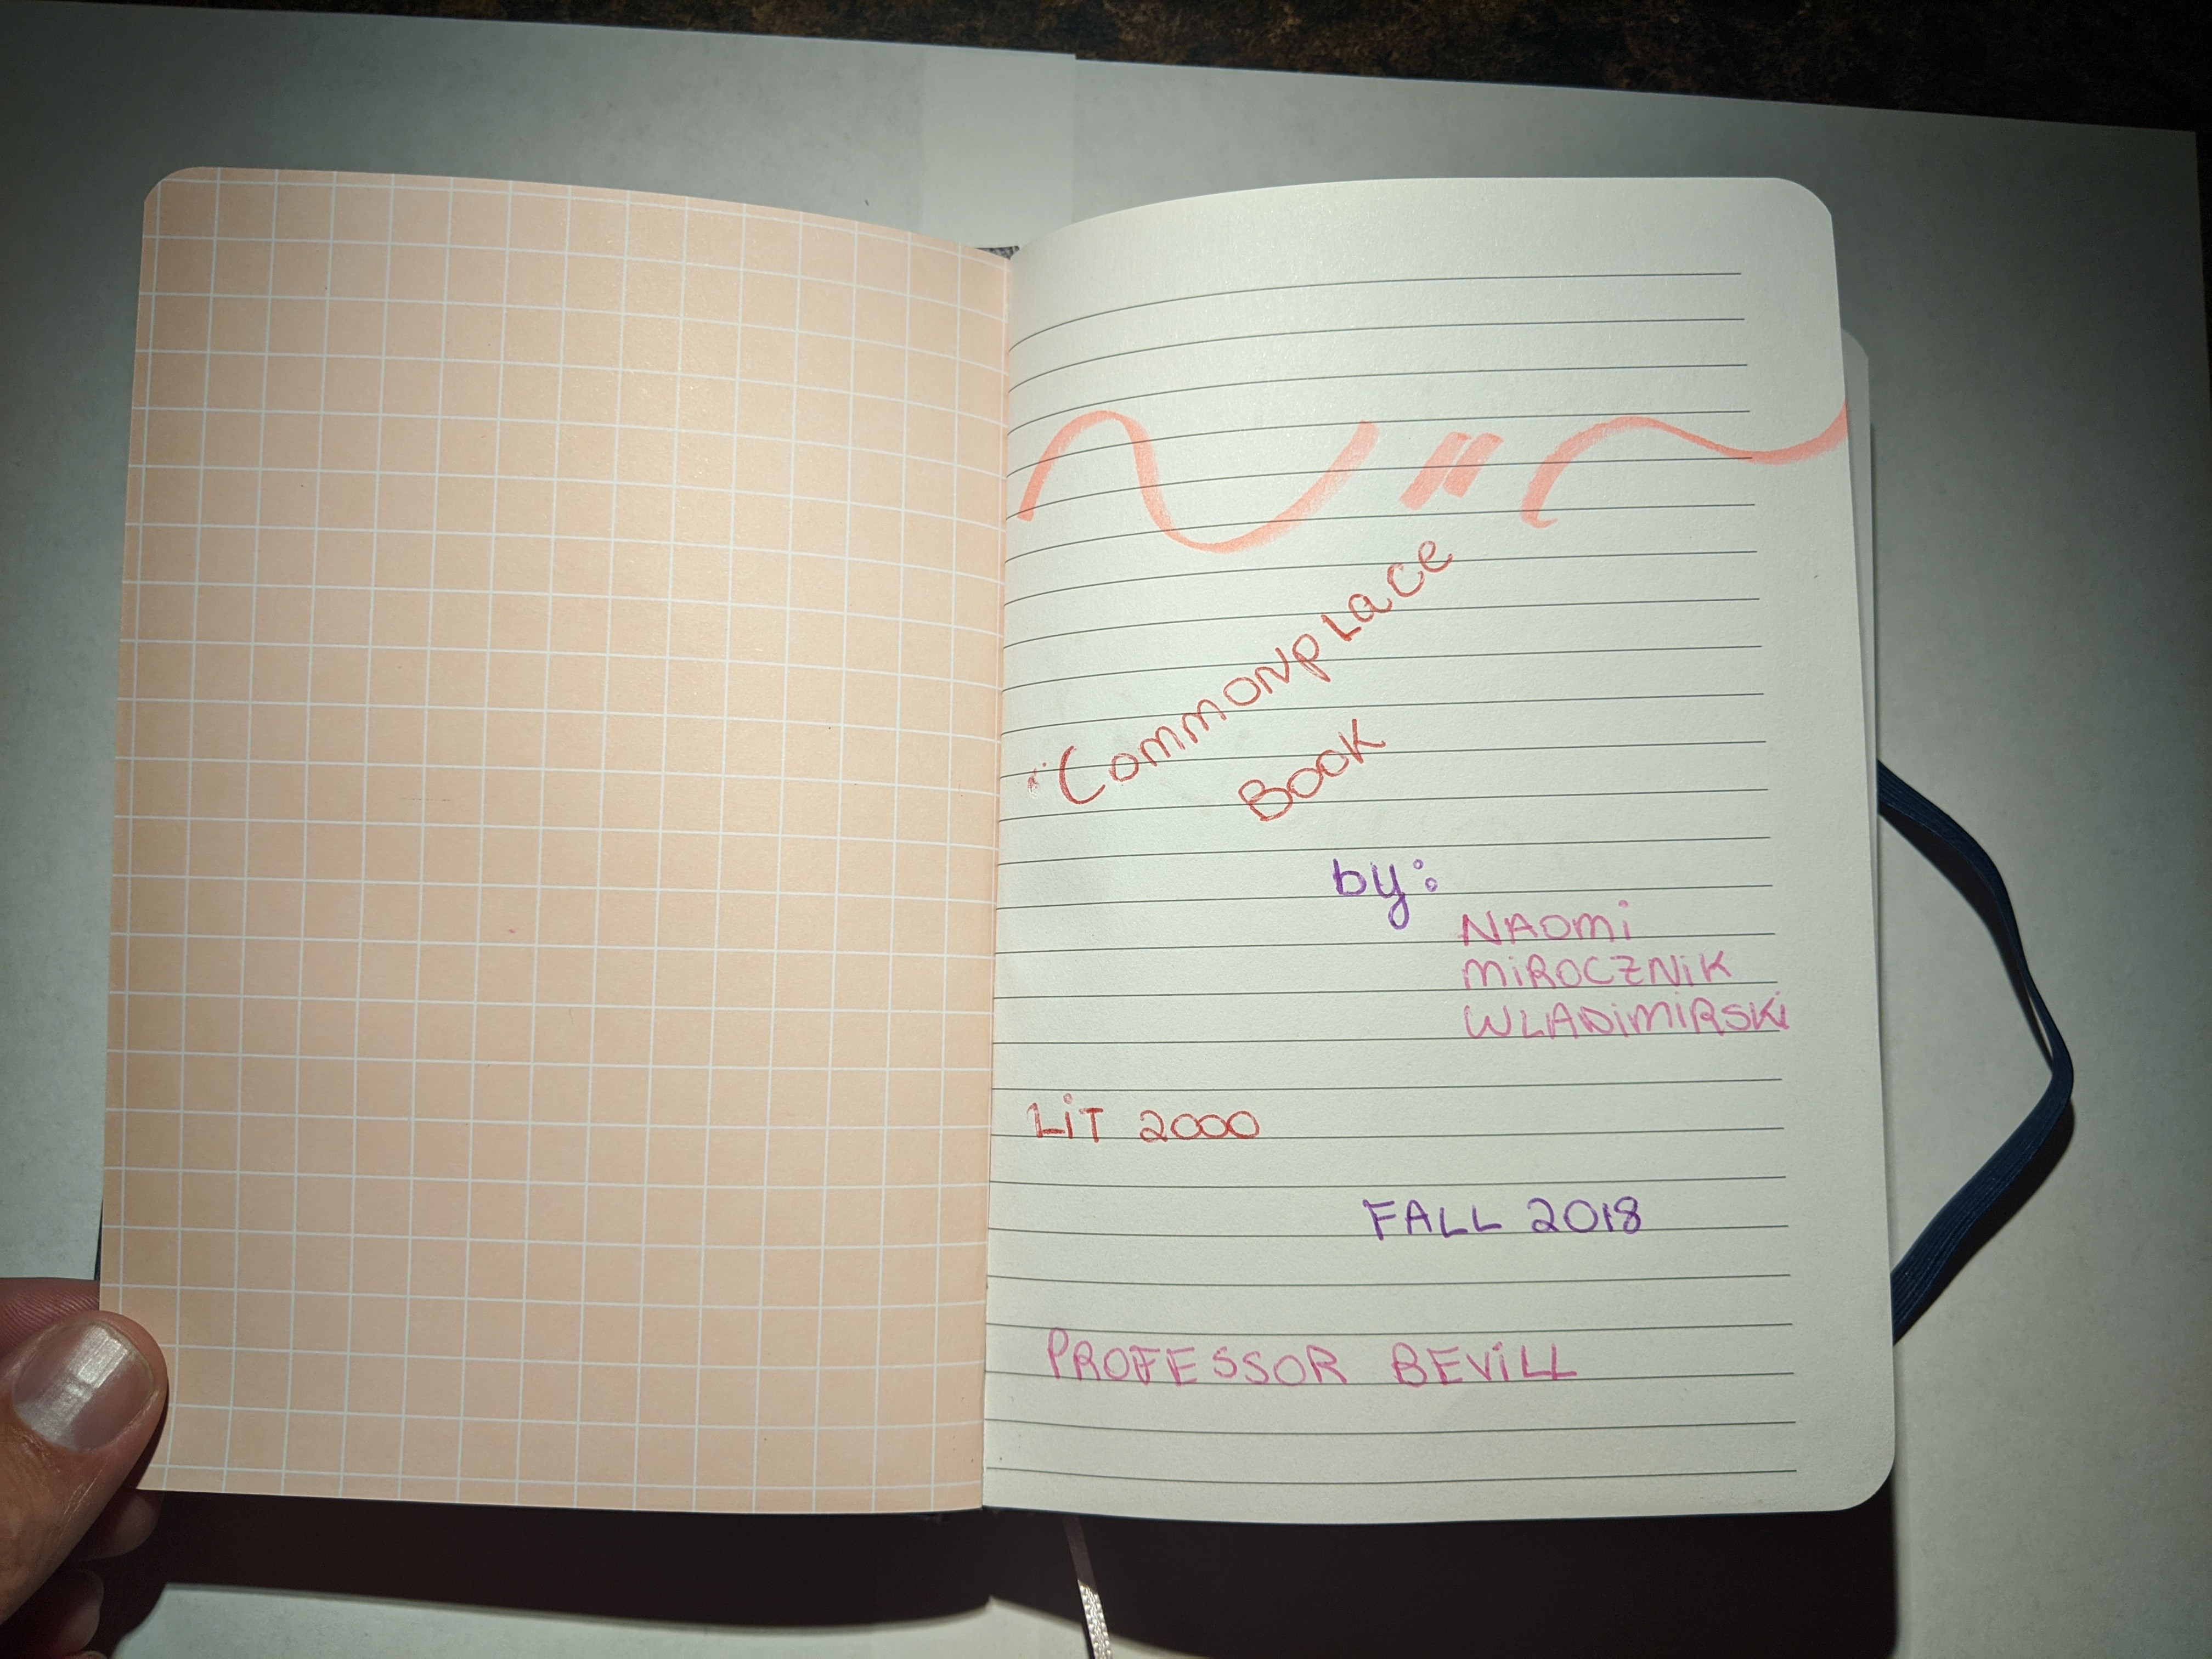 Commonplace
Book
by:
NAOMi
MiROCZNiK
WLADiMiRSKi
LiT 2000
FALL 2018
PROFESSOR BEViLL